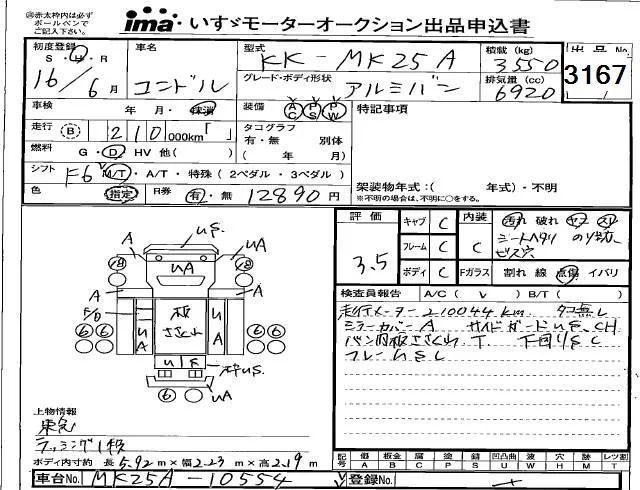 ※赤太枠内は必ずボールペンでご記入下さい。
ima いすゞモーターオークション出品申込書
初度登録 S・H・R 16年 6月
車名 コンドル
型式 KK-MK25A
グレード・ボディ形状 アルミバン
積載 (kg) 3550
排気量 (cc) 6920
出品No. 3167
車検 年・月・抹消
装備 AC PS PW
特記事項
走行 B 210,000km「 」
タコグラフ 有・無 別体
( 年 月)
燃料 G・D・HV 他( )
シフト F6 M/T・A/T・特殊(2ペダル・3ペダル)
架装物年式:( 年式)・不明
※不明の場合は、不明に○をする。
色 指定 R券 有・無 12890円
評価 3.5
キャブ C
フレーム C
ボディ C
内装 C
Fガラス
汚れ 破れ ヤニ スリ
シートヘタリ
ビス穴
割れ 線 点傷 イバリ
検査員報告 A/C( v ) B/T( )
走行メーター210044km タコ無し
ミラーカバーA サイドガードUS、CH
バン内板ささくれ T 下回りSL
フレームSL
A US. UA
18 UA 18
A A
F/O UA 板ささくれ UA
6 6 6 6
U S
UA
6
上物情報
東急
ラッシング1段
ボディ内寸約 長5.92m×幅2.23m×高2.19m
記号 価A 板金B 腐C 塗P 錆S 凹凸曲U 波W 穴H 跡M レツ割T
車台No. MK25A-10554
登録No.